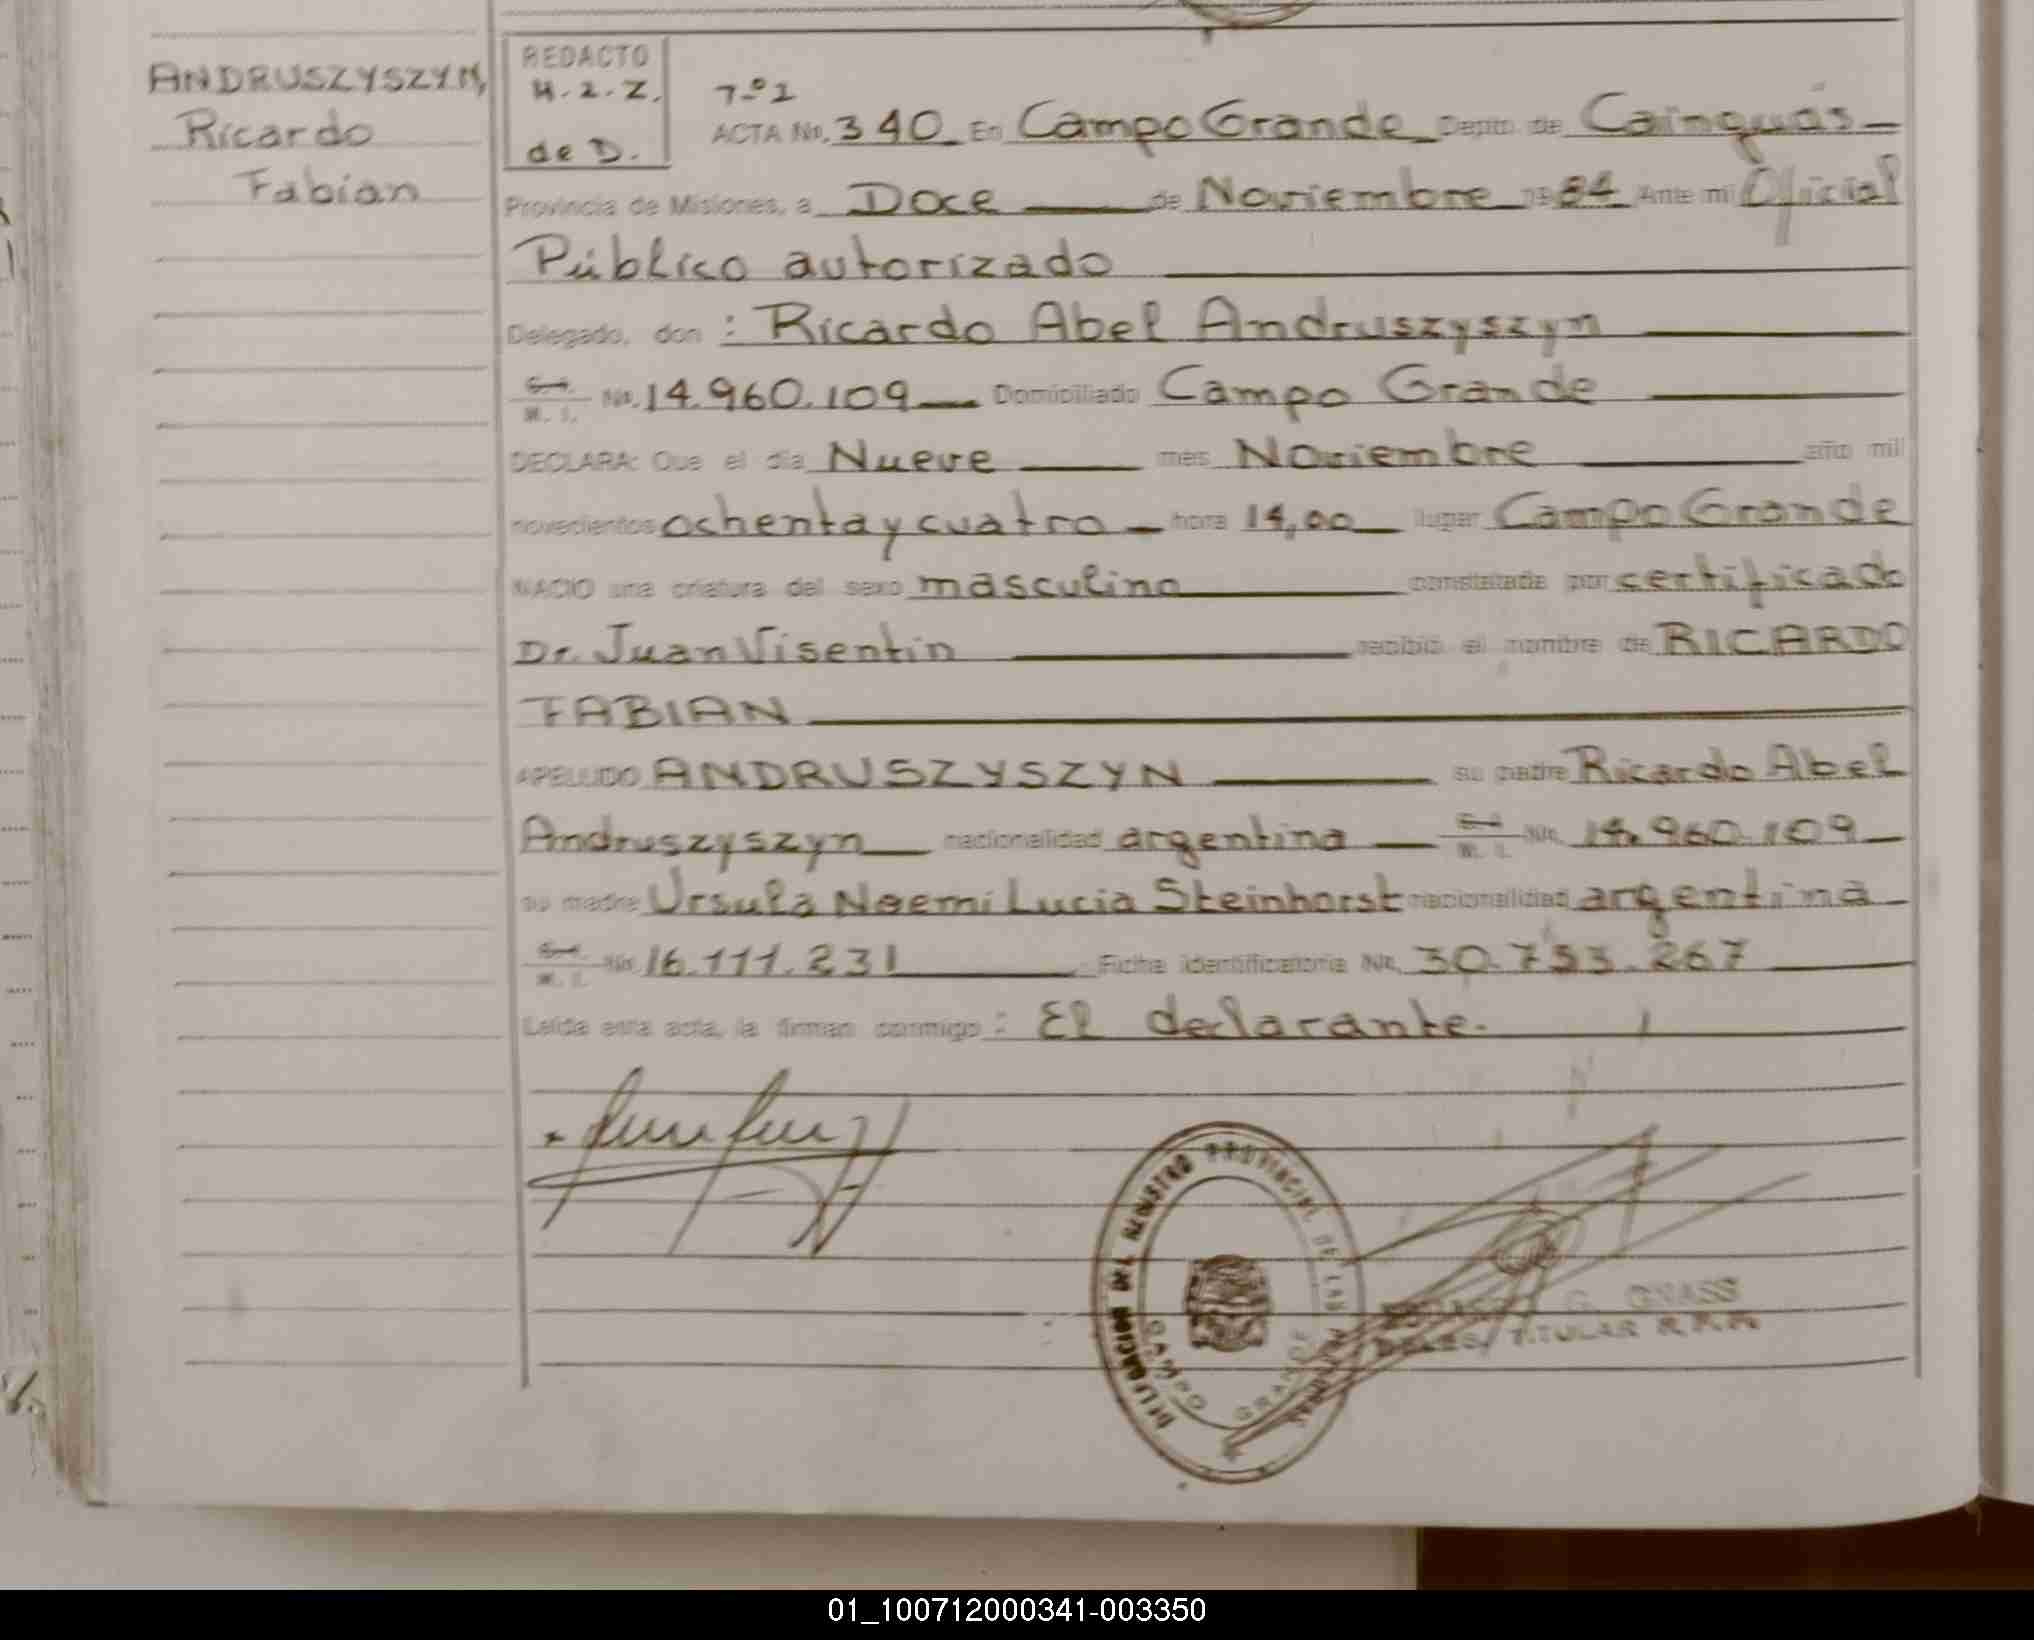 ANDRUSZYSZYN,
Ricardo
Fabian
REDACTO
H.2.Z.
de D.
Tº1
ACTA No. 340 En Campo Grande Depto. de Cainguás
Provincia de Misiones, a Doce de Noviembre 1984 Ante mi Oficial
Público autorizado
Delegado, don : Ricardo Abel Andruszyszyn
C.I. M. I. No. 14.960.109 Domiciliado Campo Grande
DECLARA: Que el día Nueve mes Noviembre año mil
novecientos ochenta y cuatro hora 14,00 lugar Campo Grande
NACIO una criatura del sexo masculino constatada por certificado
Dr. Juan Visentin recibió el nombre de RICARDO
FABIAN
APELLIDO ANDRUSZYSZYN su padre Ricardo Abel
Andruszyszyn nacionalidad argentina C.I. M. I. No. 14.960.109
su madre Ursula Noemi Lucia Steinhorst nacionalidad argentina
C.I. M. I. No. 16.111.231 Ficha identificatoria No. 30.753.267
Leída esta acta, la firman conmigo : El declarante.
DELEGACION DEL REGISTRO PROVINCIAL DE LAS PERSONAS
CAMPO GRANDE
G. GRASS
TITULAR R.P.P.
01_100712000341-003350